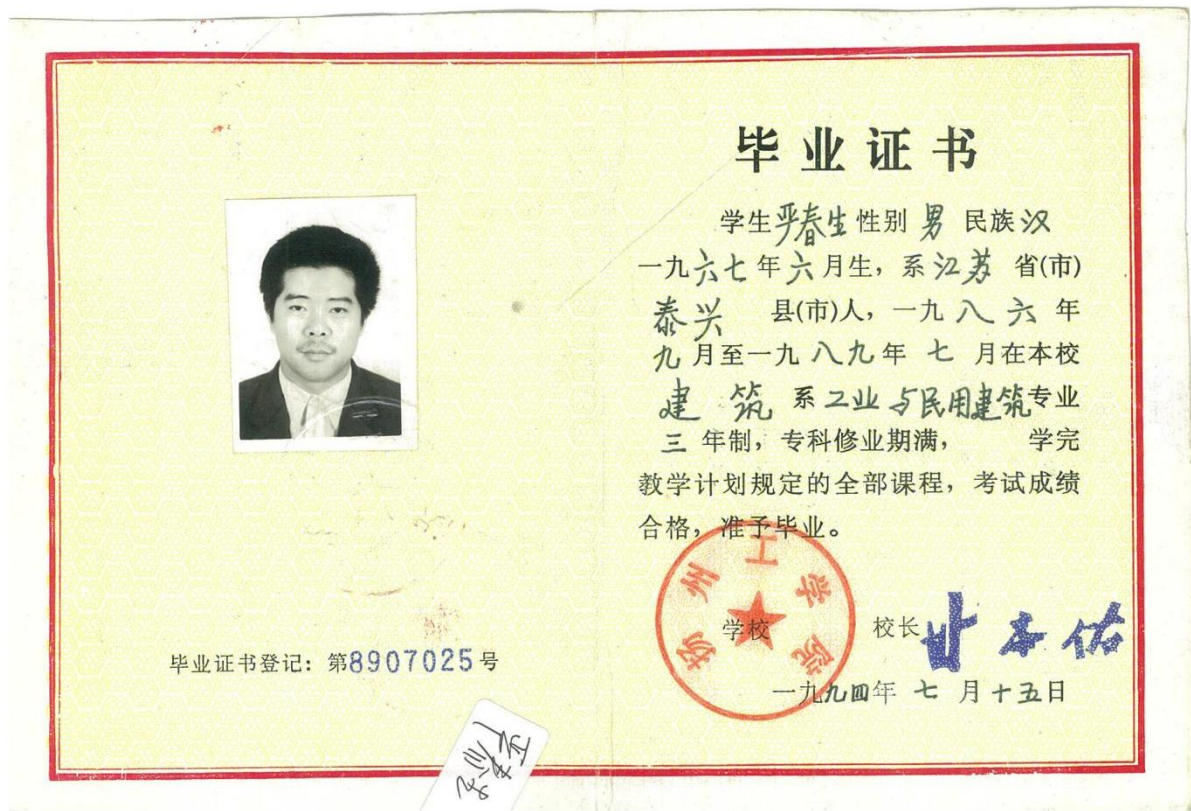 毕业证书
学生严春生性别 男 民族汉
一九六七年六月生，系江苏 省(市)
泰兴 县(市)人，一九八六年
九月至一九八九年七月在本校
建筑系工业与民用建筑专业
三年制，专科修业期满， 学完
教学计划规定的全部课程，考试成绩
合格，准予毕业。
扬州工学院
学校 校长
本佑
一九九四年七月十五日
毕业证书登记：第8907025号